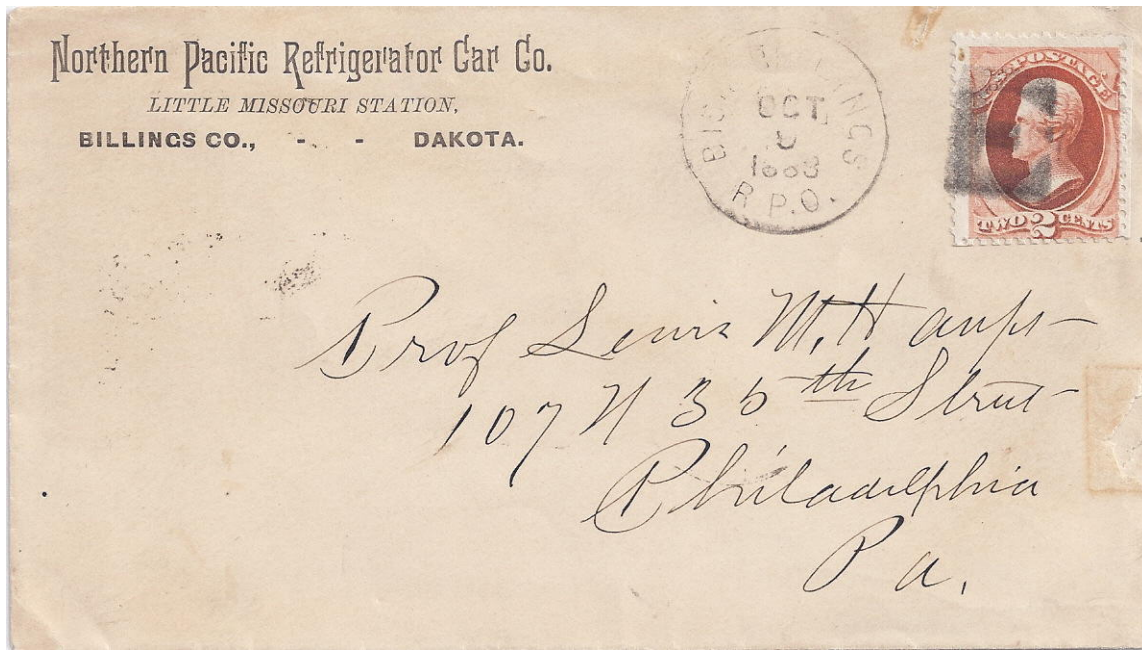 Northern Pacific Refrigerator Car Co.
LITTLE MISSOURI STATION,
BILLINGS CO., - - DAKOTA.
OCT.
1883
R.P.O.
POSTAGE
TWO 2 CENTS
Prof Lewis M. Haupt
107 N 35th Street
Philadelphia
Pa.